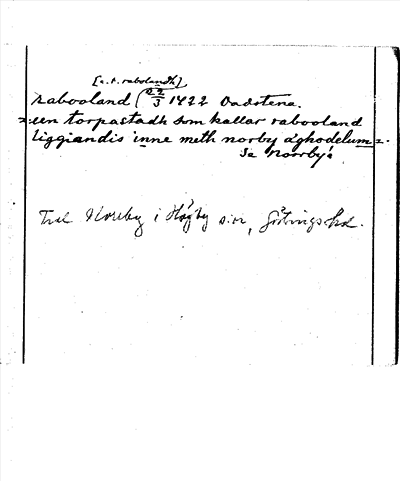 [a. t. rabolandh]
rabooland (22/3 1422 Vadstena.
een torpastadh som kallar rabooland
liggiandis inne meth norby äghodelum
Se Norrby:
Norrby i Högby s:n, Göstrings hd.